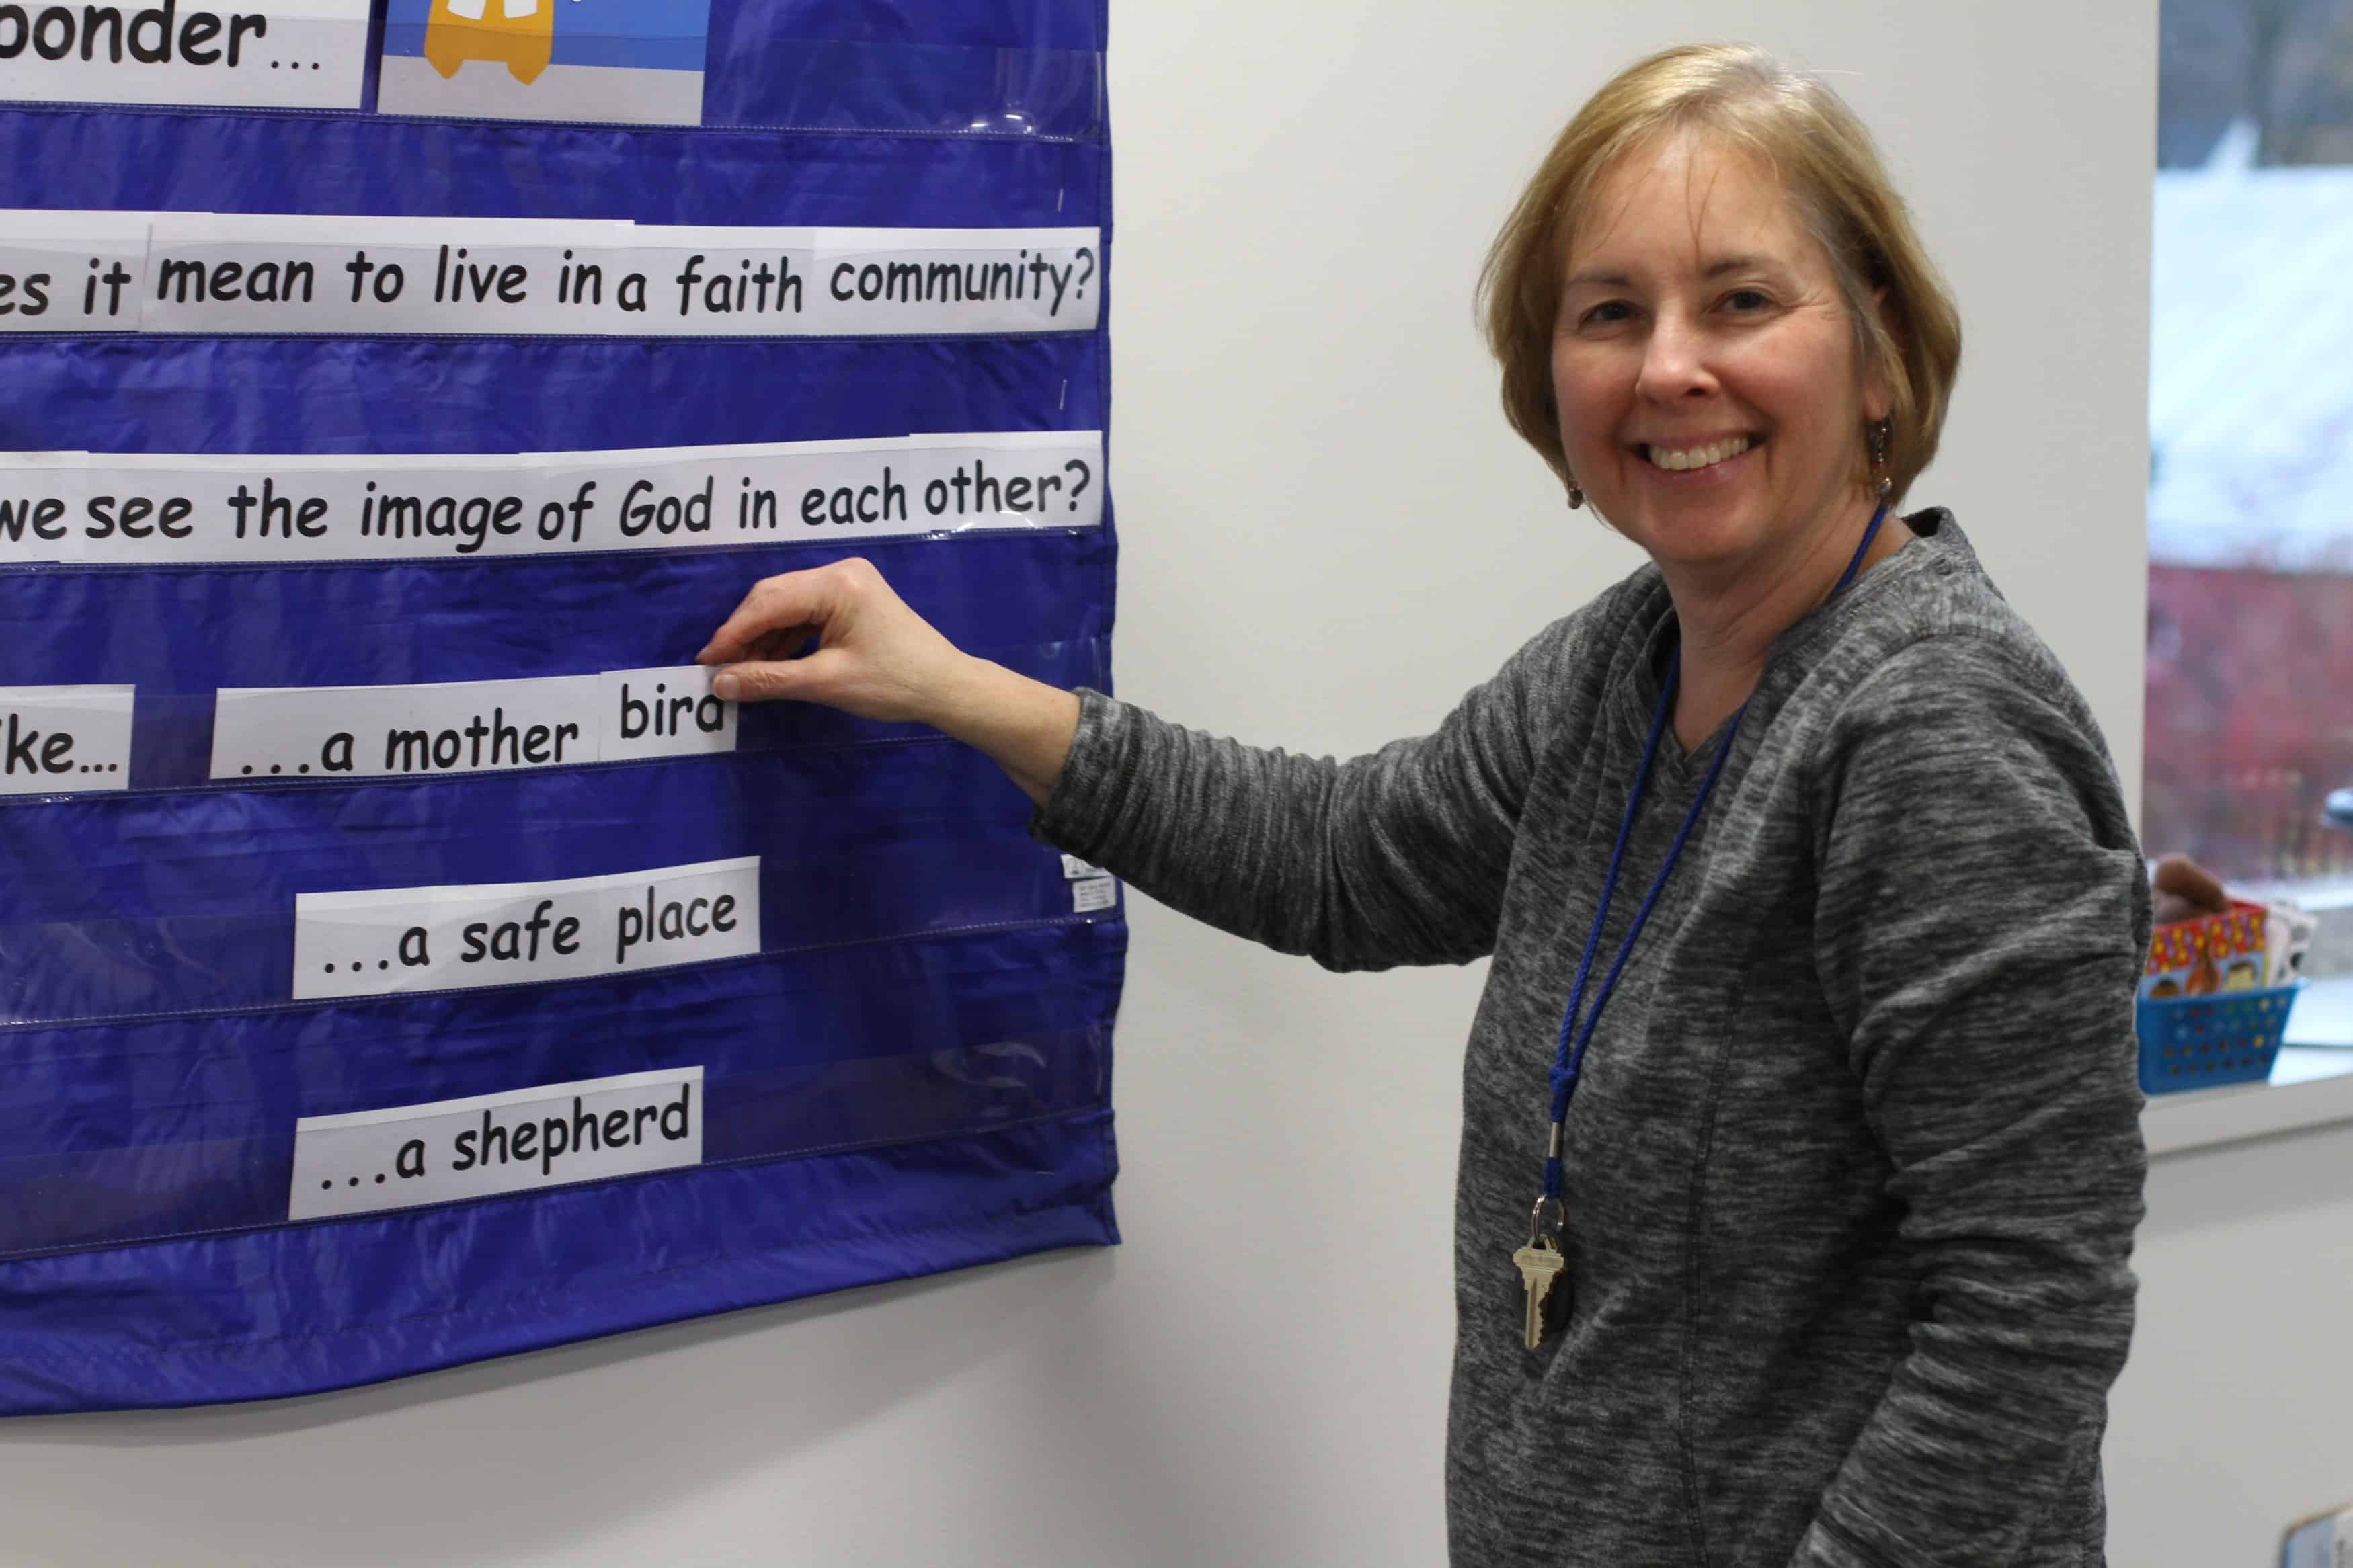 ponder...
es it mean to live in a faith community?
we see the image of God in each other?
ike... ...a mother bird
...a safe place
...a shepherd